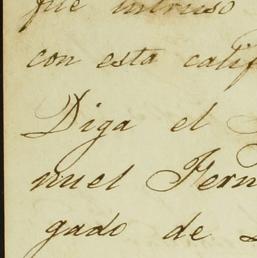 fue intruso
con esta calif
Diga el
nuel Fern
gado de